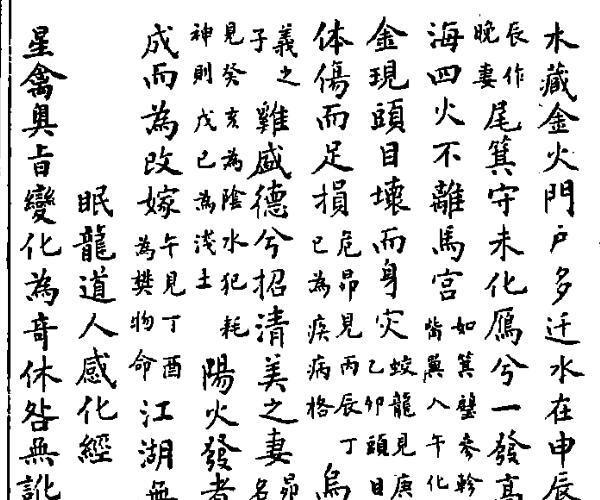 水藏金火門户多迁水在申辰
辰作晚妻尾箕守未化鴈兮一發高
海四火不離馬宫如箕壁参軫觜翼入午化
金現頭目壞而身灾蛟龍見庚乙卯頭目
体傷而足損危昴見丙辰丁已為疾病格烏
義之子雞盛德兮招清美之妻昴名
見癸亥為陰水犯耗神則戊已為淺土陽火發者
成而為改嫁午見丁酉為樊物命江湖無
眠龍道人感化經
星禽奥旨變化為奇休咎無訛